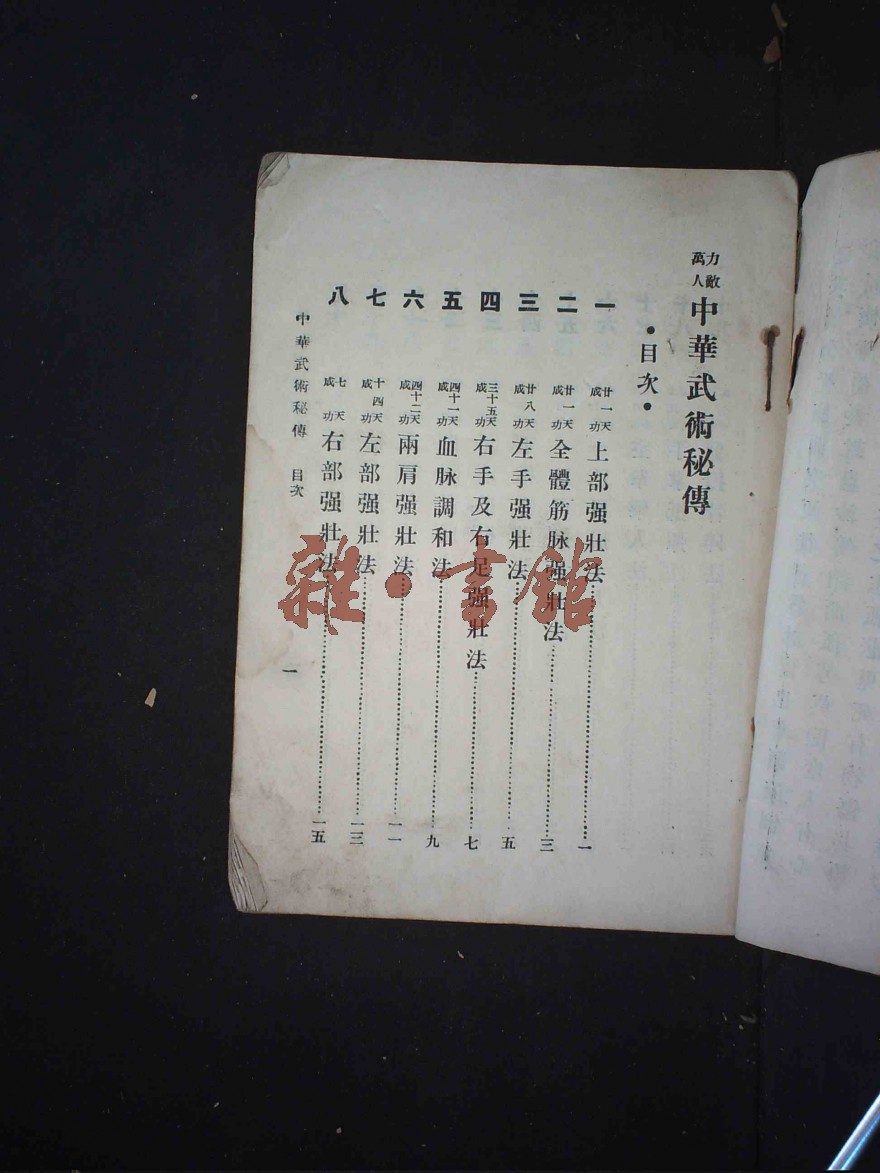 力敵萬人 中華武術秘傳
●目次●
一 廿一天成功 上部强壯法 一
二 廿一天成功 全體筋脉强壯法 三
三 廿八天成功 左手强壯法 五
四 三十五天成功 右手及右足强壯法 七
五 四十一天成功 血脉調和法 九
六 四十二天成功 兩肩强壯法 一一
七 十四天成功 左部强壯法 一三
八 七天成功 右部强壯法 一五
中華武術秘傳 目次 一
雜·書館